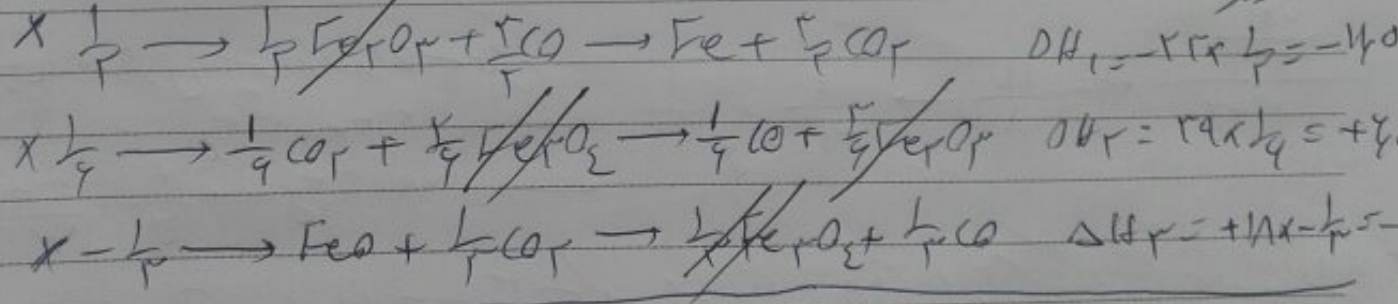 × ۱/۲ → ۱/۲ Fe۲O۳ + ۳/۲ CO → Fe + ۳/۲ CO۲ ΔH۱ = -۲۳ × ۱/۲ = -۱۱٫۵
× ۱/۶ → ۱/۶ CO۲ + ۲/۶ Fe۳O۴ → ۱/۶ CO + ۳/۶ Fe۲O۳ ΔH۲ = ۳۹ × ۱/۶ = +۶٫
× -۱/۳ → FeO + ۱/۳ CO۲ → ۱/۳ Fe۳O۴ + ۱/۳ CO ΔH۳ = +۱۸ × -۱/۳ = -